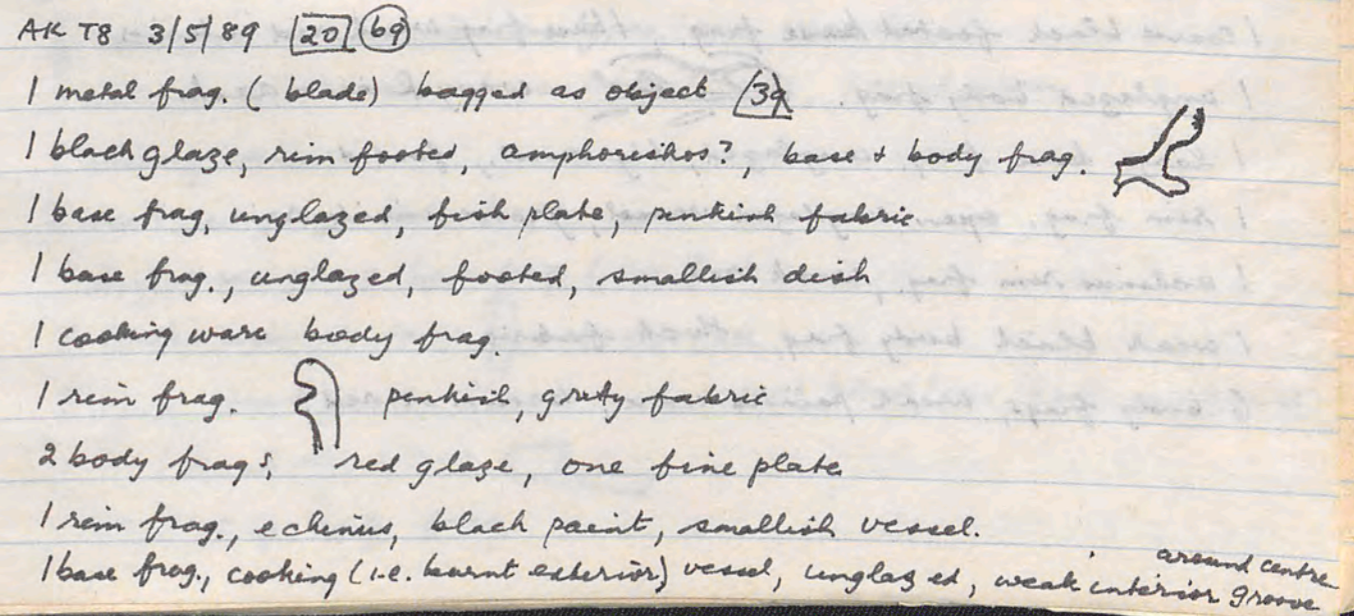 AK T8 3/5/89 20 69
1 metal frag. ( blade) bagged as object 39
1 black glaze, rim footed, amphoriskos?, base + body frag.
1 base frag, unglazed, fish plate, pinkish fabric
1 base frag., unglazed, footed, smallish dish
1 cooking ware body frag.
1 rim frag. pinkish, gritty fabric
2 body frags, red glaze, one fine plate
1 rim frag., echinus, black paint, smallish vessel.
1 base frag., cooking (i.e. burnt exterior) vessel, unglazed, weak interior groove
around centre